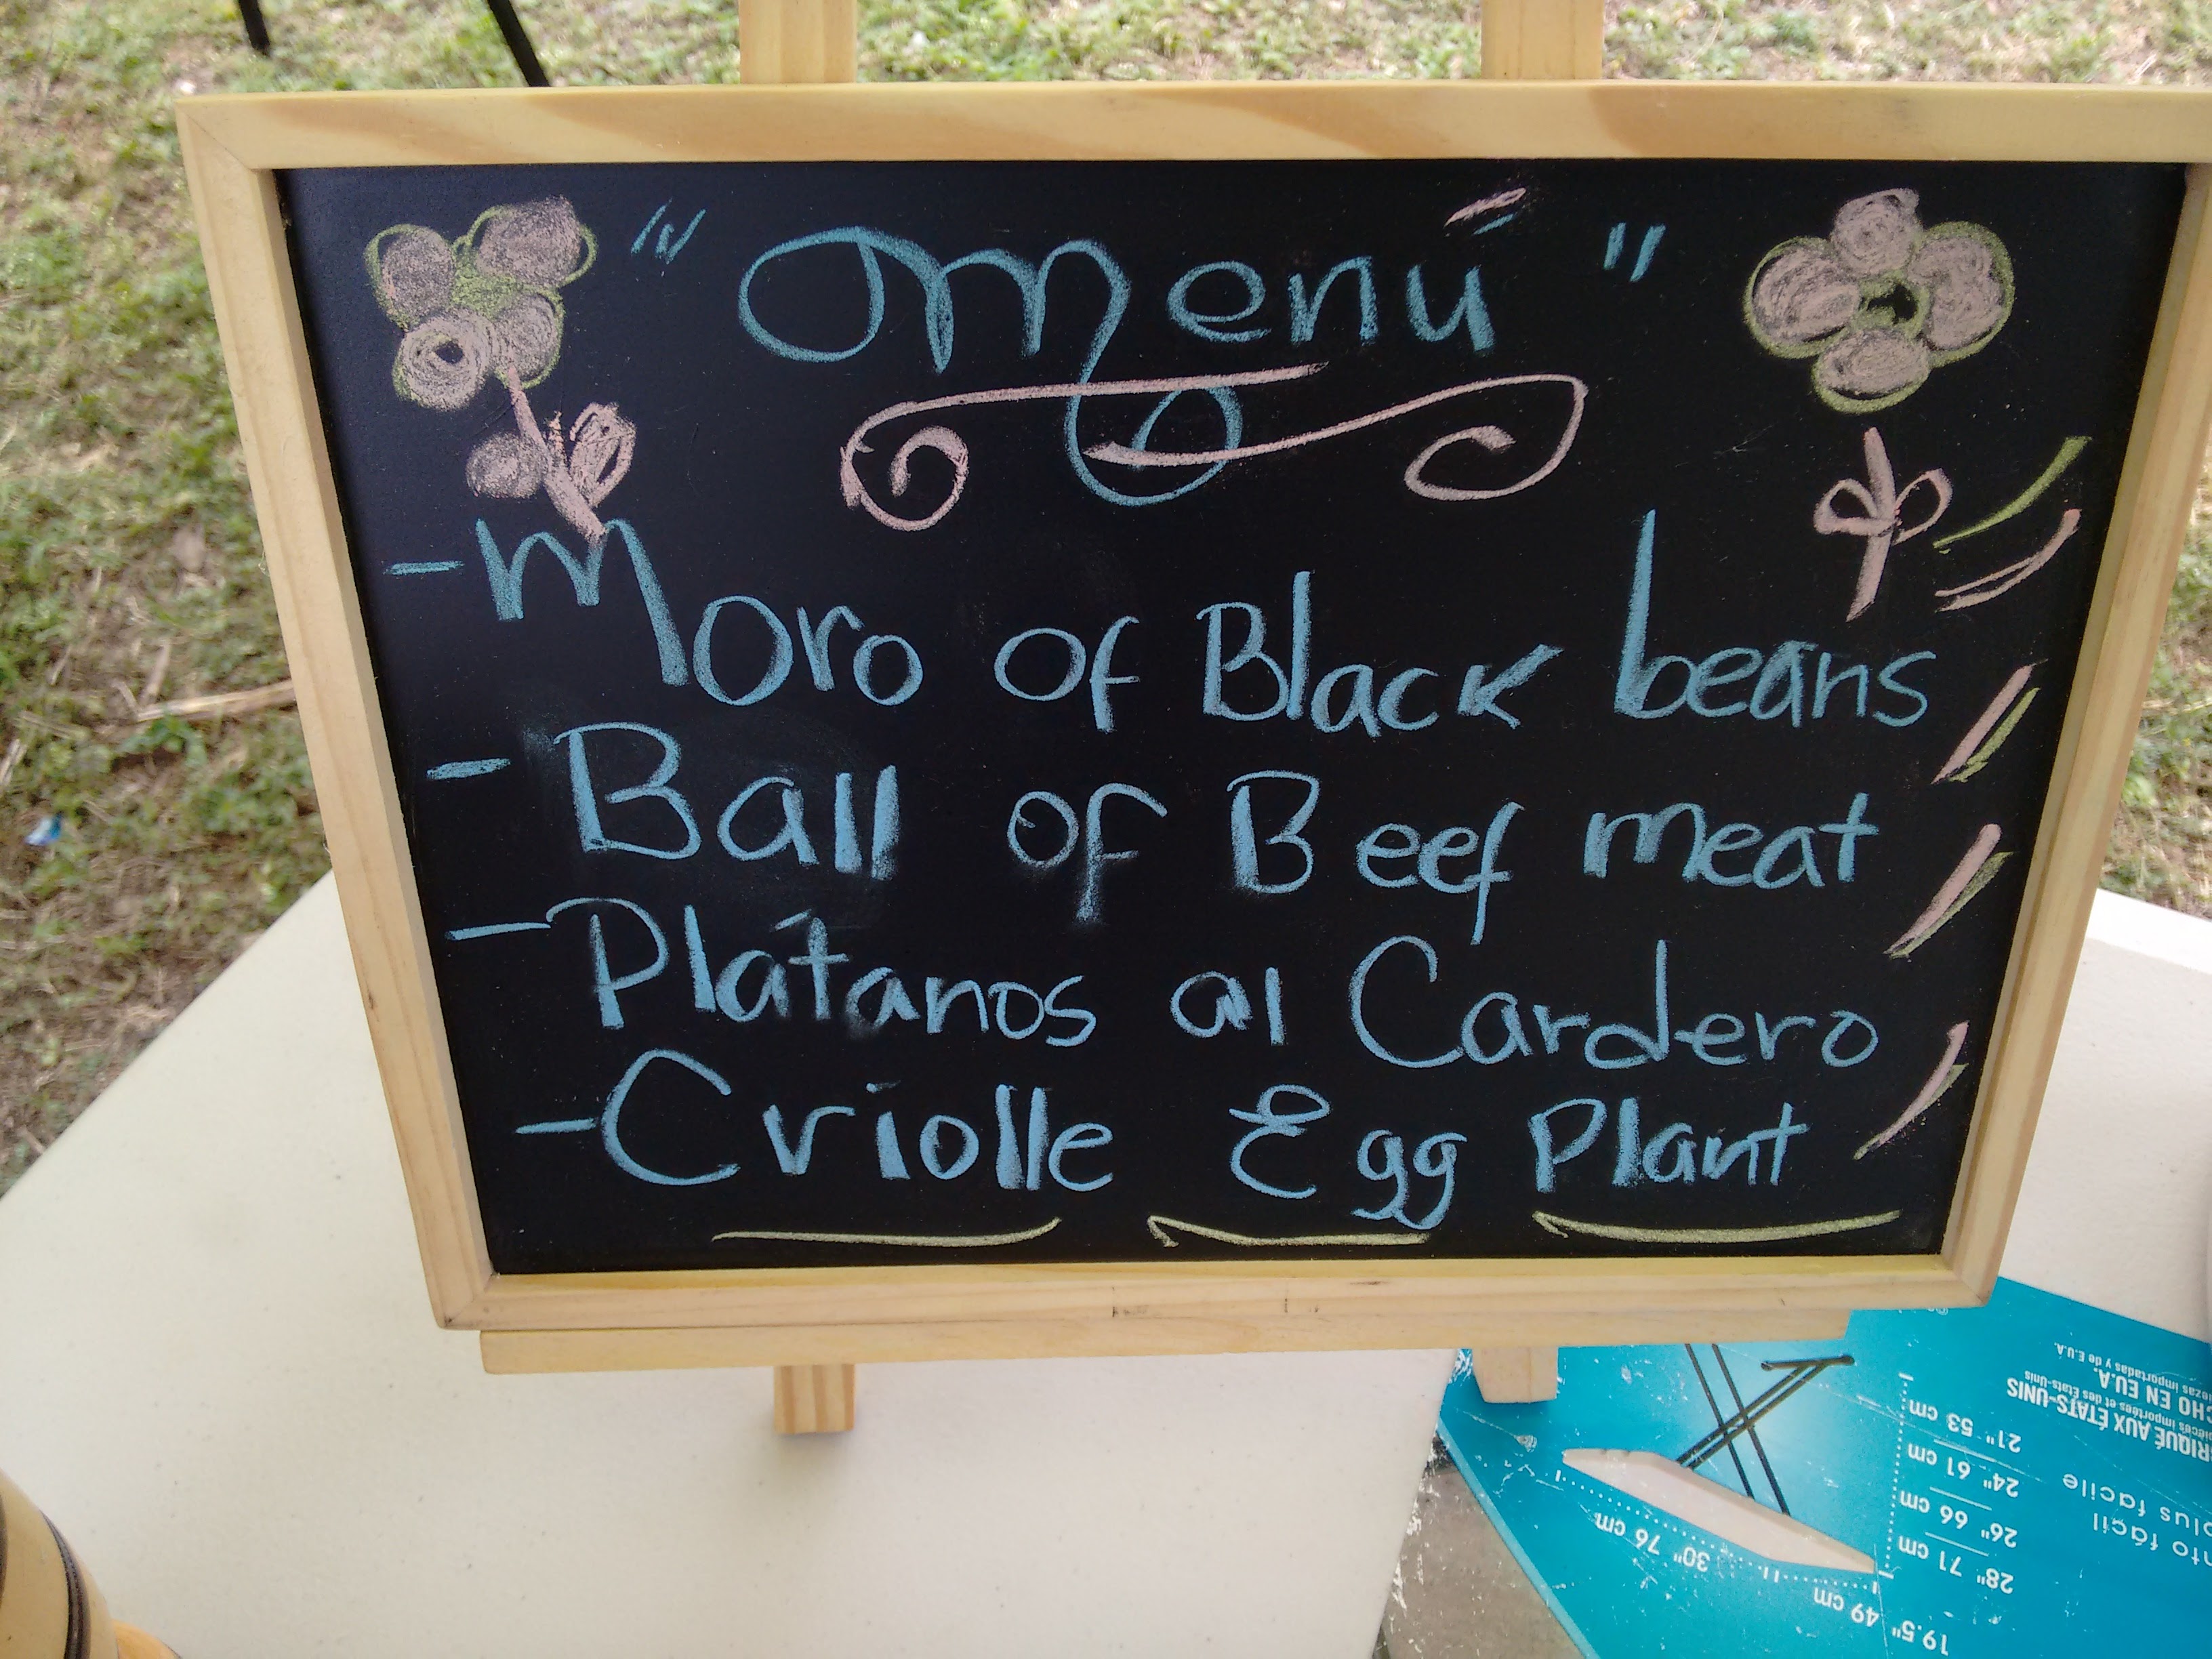 "Menú"
- Moro of Black beans
- Ball of Beef meat
- Plátanos al Cardero
- Criolle Egg Plant
19.5" 49 cm
30" 76 cm
28" 71 cm
26" 66 cm
24" 61 cm
21" 53 cm
fácil
plus facile
AUX ÉTATS-UNIS
et des États-Unis
EN EU.A.
importadas y de E.U.A.